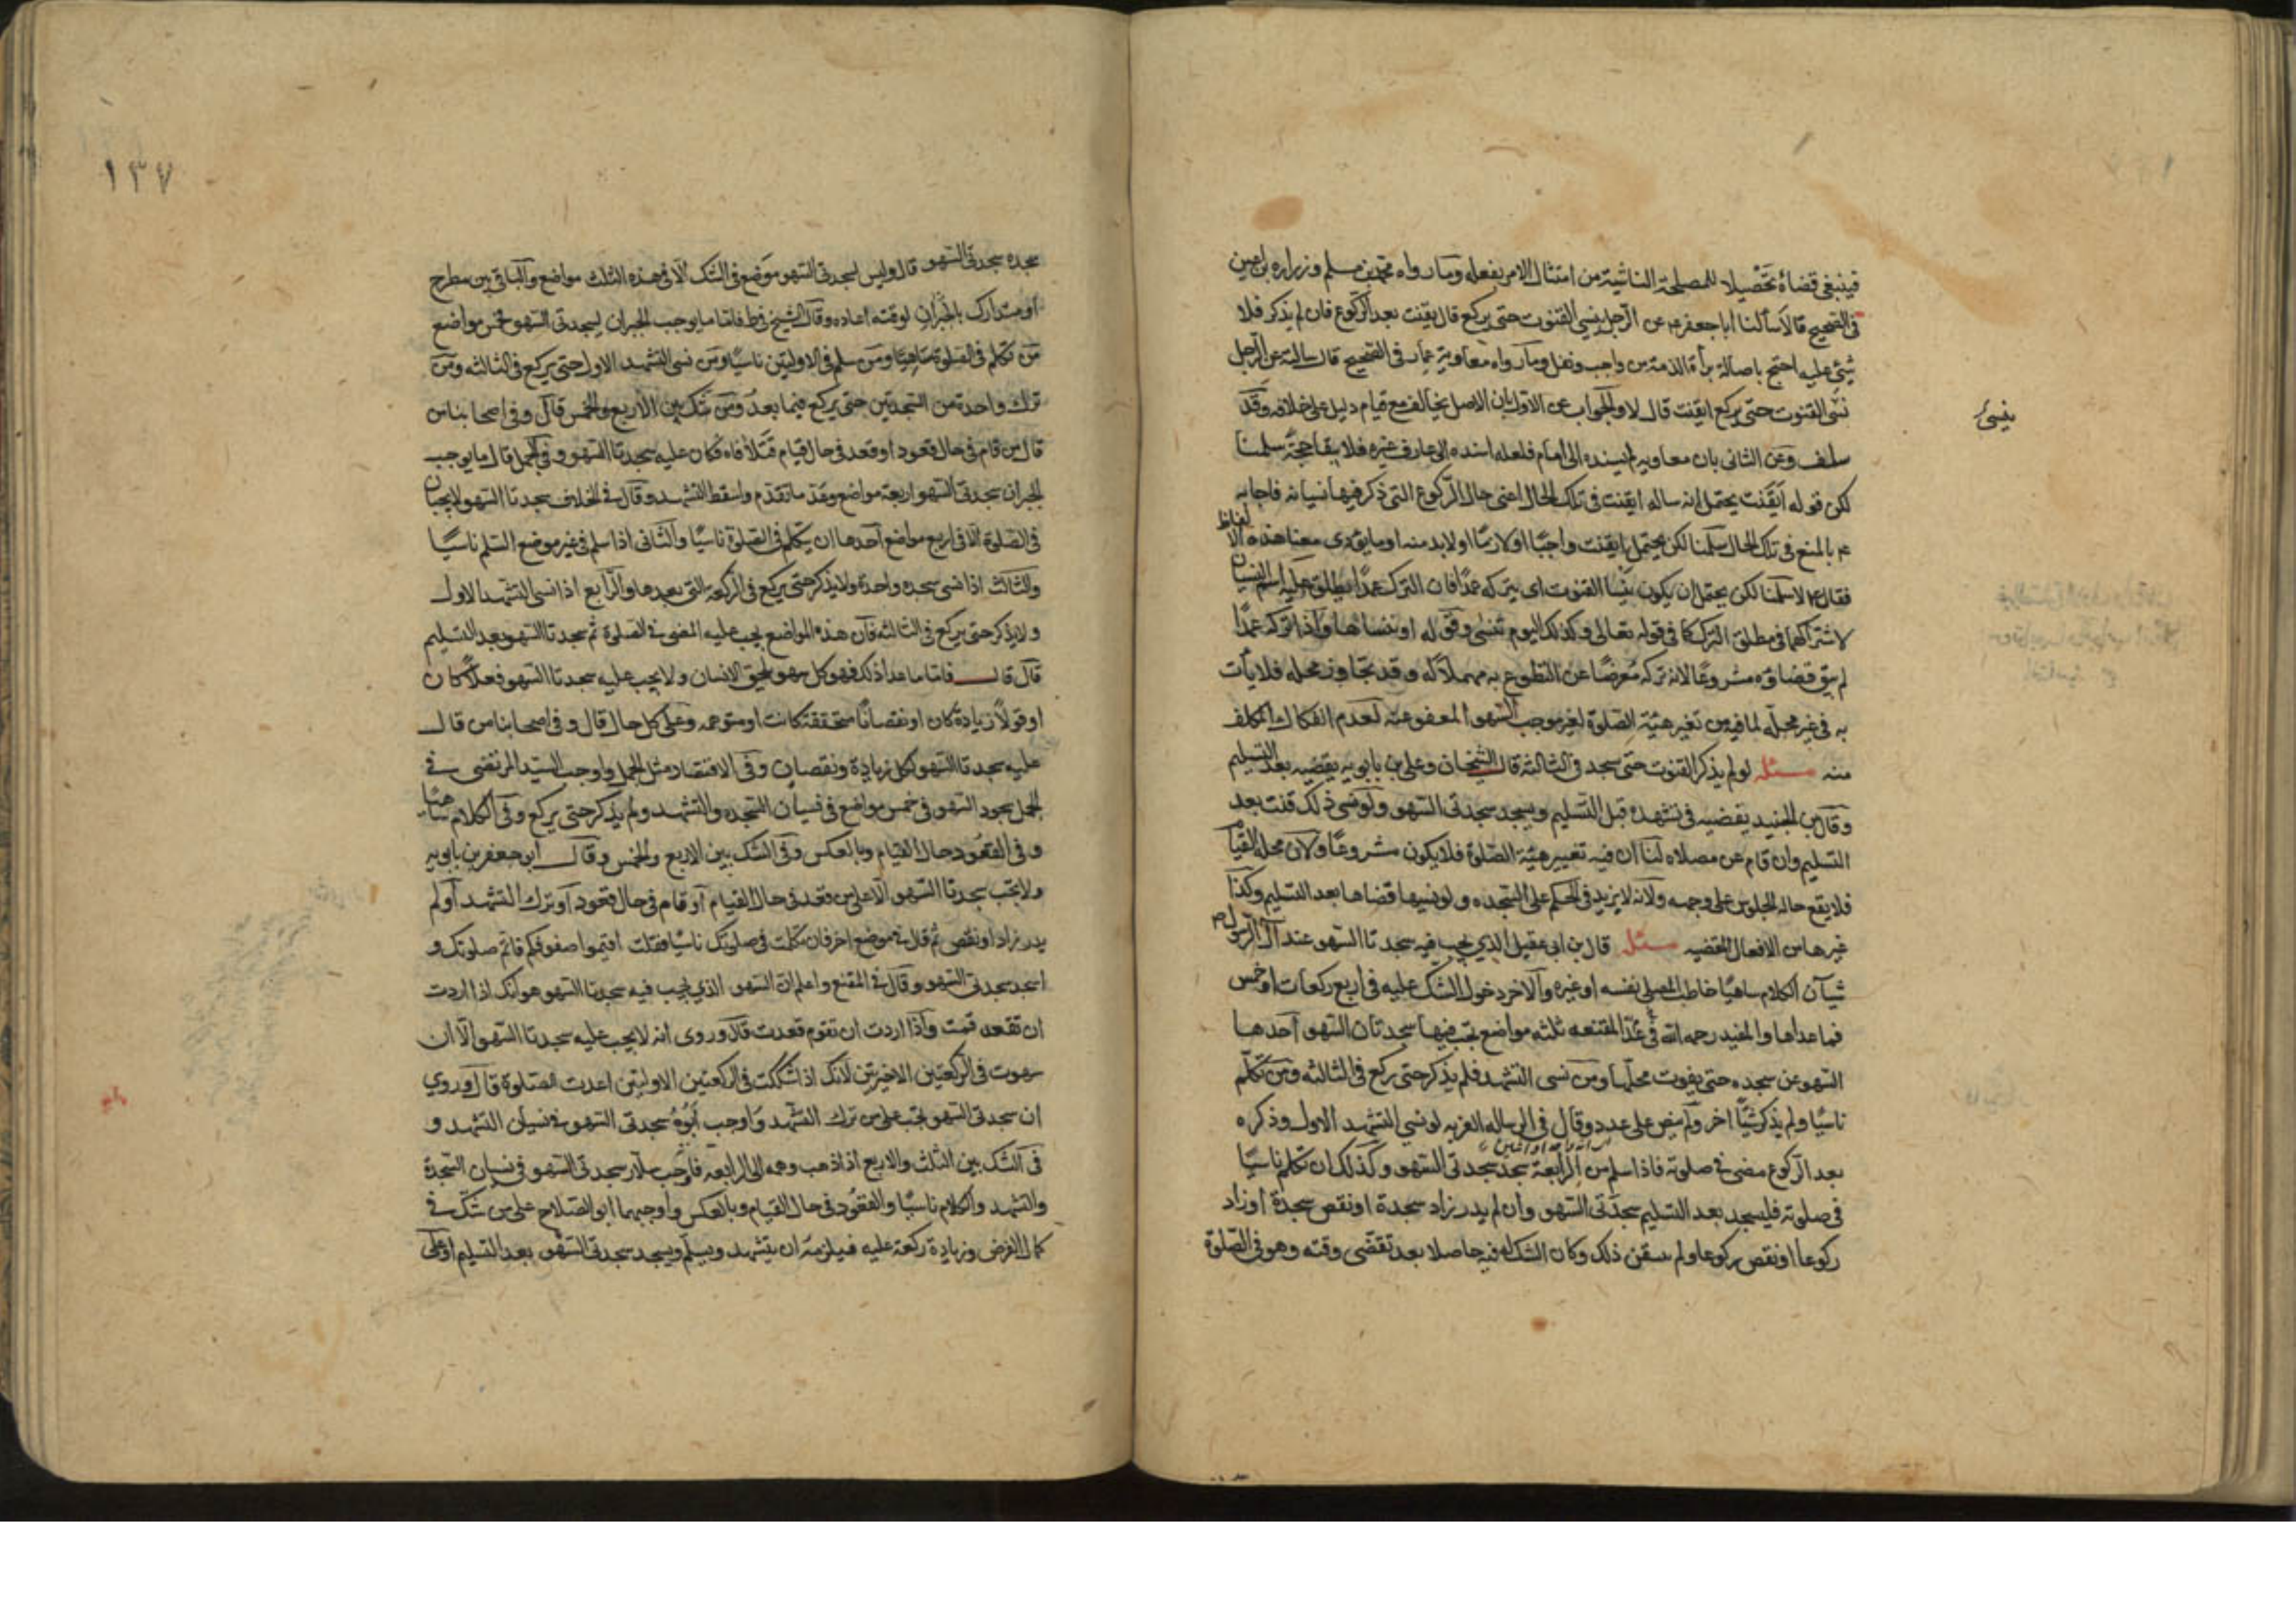 فينبغي قضاؤه تحصيلا للمصلحة الناشية من امتثال الامر بفعله وما رواه محمد بن مسلم وزراره بن اعين
في الصحيح قالا سألنا ابا جعفر ع عن الرجل ينسى القنوت حتى يركع قال يقنت بعد الركوع فان لم يذكر فلا
شيئ عليه احتج باصالة براة الذمة من واجب ونفل وما رواه معاوية بن عمار في الصحيح قال سالته عن الرجل
نسى القنوت حتى يركع ايقنت قال لا والجواب عن الاول بان الاصل يخالف مع قيام دليل على خلافه وقد
ينسى
سلف وعن الثاني بان معاويه لم يسنده الى امام فلعله اسنده الى عارف غيره فلا يبقا حجة سلمنا
لكن قوله ايقنت يحتمل انه ساله ايقنت في تلك الحال اعنى حال الركوع التي ذكر فيها نسيانه فاجابه
ع بالمنع في تلك الحال سلمنا لكن يحتمل ايقنت واجبا او لازما او لا بد منه او ما يؤدى معنا هذه الالفاظ
فقال ع لا سلمنا لكن يحتمل ان يكون ينسا القنوت اى يتركه عمدا فان الترك عمدا يطلق عليه اسم النسيان
لاشتراكهما في مطلق الترك كما في قوله تعالى وكذلك اليوم تنسى وقوله او ننساها واذا تركه عمدا
لم يبق قضاؤه مشروعا لانه تركه معرضا عن التطوع به مهملا له وقد تجاوز محله فلا يأت
به في غير محله لما فيه من تغير هيئة الصلوة لغير موجب السهو المعفو عنه لعدم انفكاك المكلف
منه مسئله لو لم يذكر القنوت حتى سجد في الثالثة قال الشيخان وعلى بن بابويه يقضيه بعد التسليم
وقال بن الجنيد يقضيه في تشهده قبل التسليم ويسجد سجدتى السهو ولو نسى ذلك قنت بعد
التسليم وان قام عن مصلاه لنا ان فيه تغيير هيئة الصلوة فلا يكون مشروعا ولان محله القيام
فلا يقع حاله الجلوس على وجهه ولانه لا يزيد في الحكم على السجده ولو نسيها قضاها بعد التسليم وكذا
غيرها من الافعال المقضيه مسئله قال بن ابى عقيل الذي يجب فيه سجدتا السهو عند آل الرسول ص
شيآن الكلام ساهيا خاطب المصلى نفسه او غيره والآخر دخول الشك عليه في اربع ركعات او خمس
فما عداها والمفيد رحمه الله في عد المقنعه ثلثه مواضع يجب فيها سجدتان السهو احدها
السهو عن سجده حتى يفوت محلها ومن نسى التشهد فلم يذكر حتى ركع في الثالثه ومن تكلم
ناسيا ولم يذكر شيئا اخر ولم ينص على عدد وقال في الرساله الغريه لو نسى التشهد الاول وذكره
بعد الركوع مضى في صلوته فاذا سلم من الرابعة سجد سجدتى السهو وكذلك ان تكلم ناسيا
في صلوته فليسجد بعد التسليم سجدتى السهو وان لم يدر زاد سجدة او نقص سجدة او زاد
ركوعا او نقص ركوعا ولم يتيقن ذلك وكان الشك له فيه حاصلا بعد تقضى وقته وهو في الصلوة
١٣٧
سجده سجدتى السهو قال وليس لسجدتى السهو موضع في الشك الا في هذه الثلث مواضع والباقى بين مطرح
او متدارك بالجبران لوقته اعاده وقال الشيخ في ط فاما ما يوجب الجبران بسجدتى السهو فخمس مواضع
من تكلم في الصلوة ساهيا ومن سلم في الاوليتين ناسيا ومن نسى التشهد الاول حتى يركع في الثالثه ومن
ترك واحدة من السجدتين حتى يركع فيما بعد ومن شك بين الاربع والخمس قال وفي اصحابنا من
قال من قام في حال قعود او قعد في حال قيام فتلافاه كان عليه سجدتا السهو وفي الجمل قال ما يوجب
الجبران سجدتى السهو اربعة مواضع وعد ما تقدم واسقط التشهد وقال في الخلاف سجدتا السهو لا يجبان
في الصلوة الا في اربع مواضع احدها ان يتكلم في الصلوة ناسيا والثانى اذا سلم في غير موضع السلم ناسيا
والثالث اذا نسى سجده واحدة ولا يذكر حتى يركع في الركعه التى بعدها والرابع اذا نسى التشهد الاول
ولا يذكر حتى يركع في الثالثه فان هذه المواضع يجب عليه المضى في الصلوة ثم سجدتا السهو بعد التسليم
قال قال فاما ما عدا ذلك فهو كل سهو يلحق الانسان ولا يجب عليه سجدتا السهو فعلا كان
او قولا زيادة كان او نقصانا متحققة كانت او متوهمه وعلى كل حال قال وفي اصحابنا من قال
عليه سجدتا السهو لكل زيادة ونقصان وفي الاقتصاد مثل الجمل واوجب السيد المرتضى في
الجمل سجود السهو في خمس مواضع في نسيان السجده والتشهد ولم يذكر حتى يركع وفي الكلام ساهيا
وفي القعود حال القيام وبالعكس وفي الشك بين الاربع والخمس وقال ابو جعفر بن بابويه
ولا يجب سجدتا السهو الا على من قعد في حال القيام او قام في حال قعود او ترك التشهد او لم
يدر زاد او نقص ثم قال في موضع اخر فان تكلمت في صلوتك ناسيا فقلت اقيموا صفوفكم فاتم صلوتك و
اسجد سجدتى السهو وقال في المقنع واعلم ان السهو الذي يجب فيه سجدتا السهو هو انك اذا اردت
ان تقعد قمت واذا اردت ان تقوم قعدت قال وروى انه لا يجب عليه سجدتا السهو الا ان
سهوت في الركعتين الاخيرتين لانك اذا شككت في الركعتين الاوليتين اعدت الصلوة قال وروي
ان سجدتى السهو يجب على من ترك التشهد واوجب ابوه سجدتى السهو في نسيان التشهد و
في الشك بين الثلث والاربع اذا ذهب وهمه الى الرابعه فاوجب سلار سجدتى السهو في نسيان السجدة
والتشهد والكلام ناسيا والقعود في حال القيام وبالعكس واوجبهما ابو الصلاح على من شك في
كمال الفرض وزيادة ركعة عليه فيلزمه ان يتشهد ويسلم ويسجد سجدتى السهو بعد التسليم او على